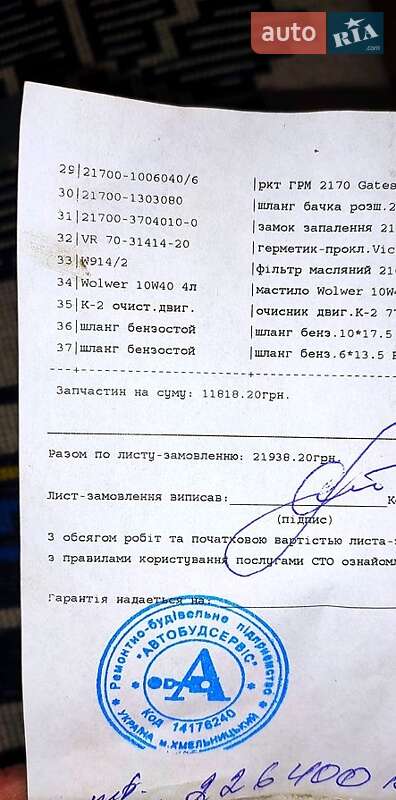 auto RIA.com
29|21700-1006040/6 |ркт ГРМ 2170 Gates
30|21700-1303080 |шланг бачка розш.2
31|21700-3704010-0 |замок запалення 21
32|VR 70-31414-20 |герметик-прокл.Vic
33|W914/2 |фільтр масляний 21
34|Wolwer 10W40 4л |мастило Wolwer 10W4
35|К-2 очист.двиг. |очисник двиг.К-2 7
36|шланг бензостой |шланг бенз.10*17.5
37|шланг бензостой |шланг бенз.6*13.5
Запчастин на суму: 11818.20грн.
Разом по листу-замовленню: 21938.20грн.
Лист-замовлення виписав:
(підпис)
З обсягом робіт та початковою вартістью листа-
з правилами користування послугами СТО ознайомл
Гарантія надається на:
Ремонтно-будівельне підприємство
"АВТОБУДСЕРВІС"
Код 14176240
УКРАЇНА м.ХМЕЛЬНИЦЬКИЙ
226400